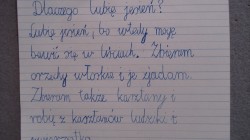 Dlaczego lubię jesień?
Lubię jesień, bo wtedy mogę
bawić się w liściach. Zbieram
orzechy włoskie i je zjadam.
Zbieram także kasztany i
robię z kasztanów ludziki i